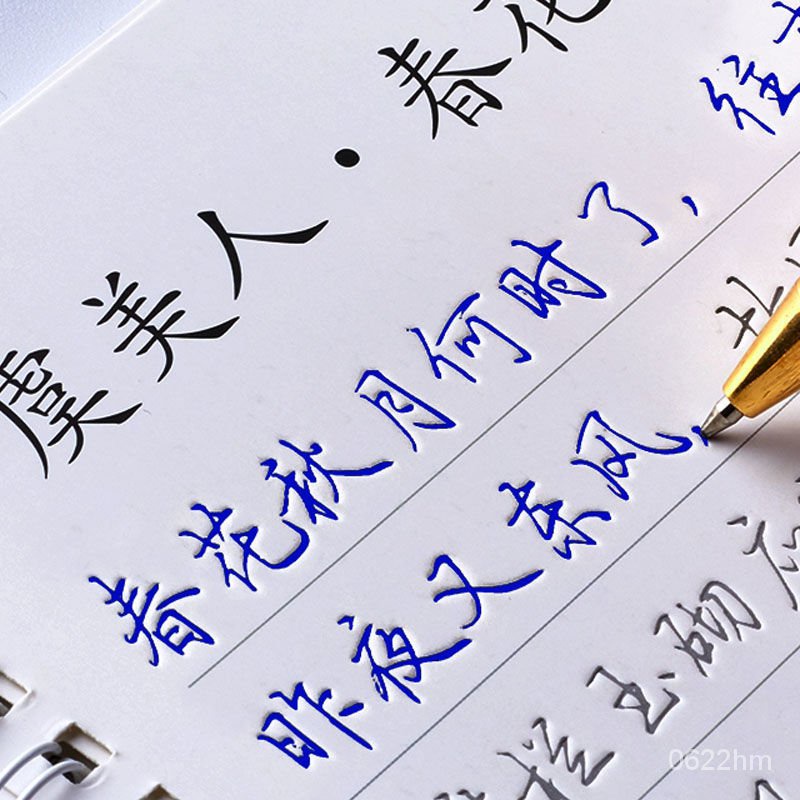 虞美人·春花
春花秋月何时了，往
昨夜又东风，
栏玉砌应
0622hm